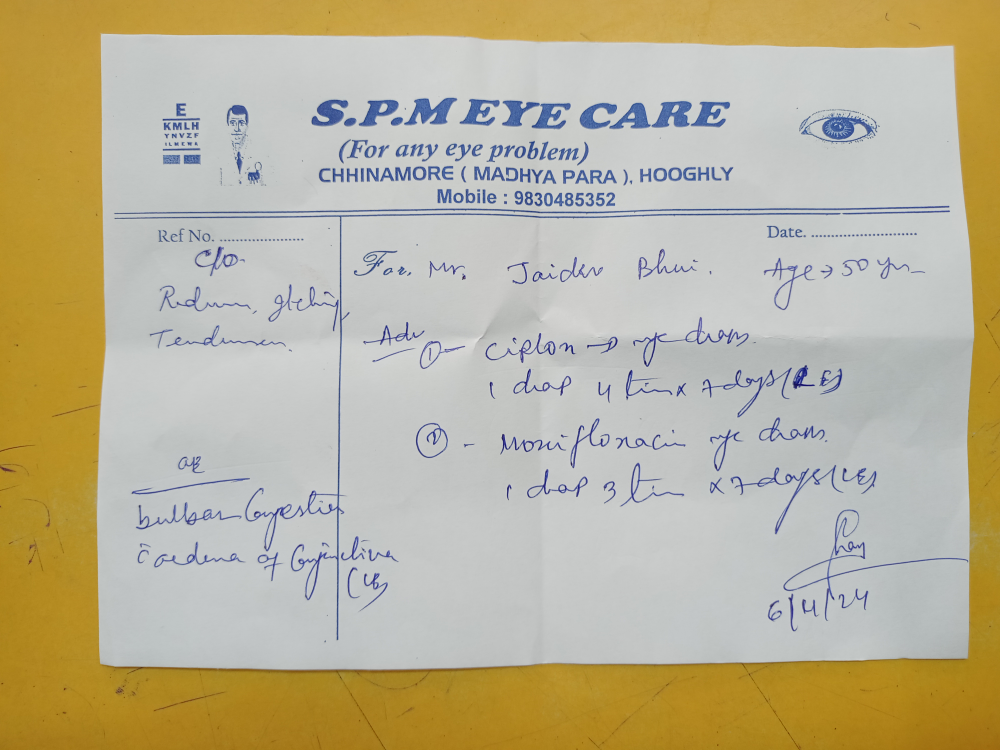 E
KMLH
YNVZF
ILMEWA
S.P.M EYE CARE
(For any eye problem)
CHHINAMORE ( MADHYA PARA ), HOOGHLY
Mobile : 9830485352
Ref No. ........................
Date. ..............................
C/O
Redness, Itching,
Tenderness.
For, Mr. Jaidev Bhui. Age → 50 yrs
Adv
① - Ciplon → eye drops.
1 drop 4 tim x 7 days (LE)
② - Moxifloxacin eye drops.
1 drop 3 tim x 7 days (LE)
OE
bulbar Congestion
c̄ oedema of Conjunctiva
(LE)
6/4/24